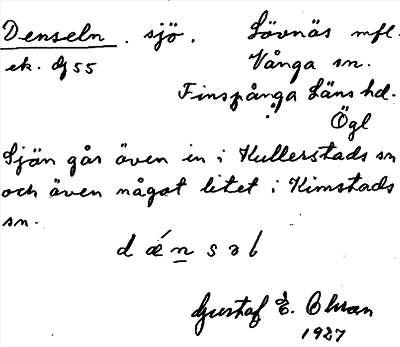 Denseln. sjö. Lövnäs mfl.
ek. dj 55 Vånga sn.
Finspånga Läns hd.
Ögl
Sjön går även in i Kullerstads sn
och även något litet i Kimstads
sn.
d ǽ n s ə l
Gustaf E. Olsson
1927